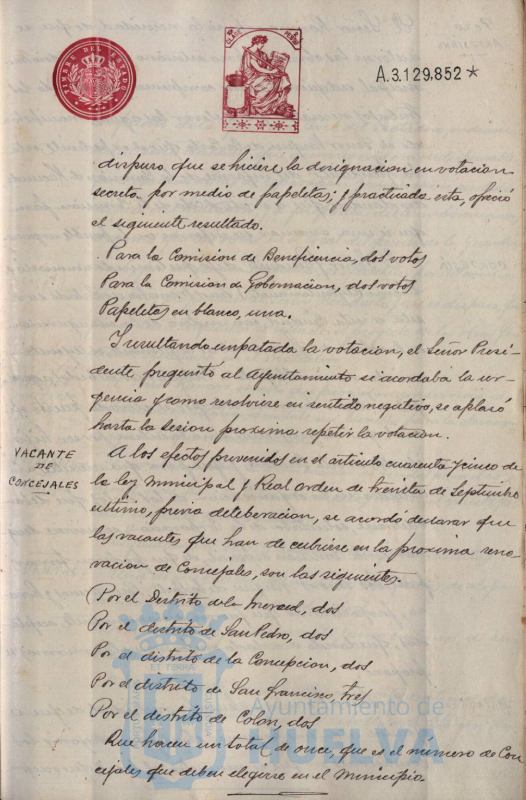 TIMBRE DEL ESTADO
CLASE
A.3.129.852*
dispuso que se hiciere la designacion en votacion
secreta por medio de papeletas; y practicada esta, ofreció
el siguiente resultado.
Para la Comision de Beneficencia, dos votos
Para la Comision de Gobernacion, dos votos
Papeletas en blanco, una.
Y resultando empatada la votacion, el Señor Presi-
dente preguntó al Ayuntamiento si acordaba la ur-
gencia y como resolviere en sentido negativo, se aplazó
hasta la sesion proxima repetir la votacion.
VACANTE
DE
CONCEJALES
A los efectos prevenidos en el articulo cuarenta y cinco de
la ley Municipal y Real Orden de treinta de Septiembre
ultimo, previa deliberacion, se acordó declarar que
las vacantes que han de cubrirse en la proxima reno-
vacion de Concejales, son las siguientes.
Por el Distrito de la Merced, dos
Por el distrito de San Pedro, dos
Por el distrito de la Concepcion, dos
Por el distrito de San Francisco, tres
Por el distrito de Colon, dos
Que hacen un total de once, que es el número de Con-
cejales que deben elegirse en el Municipio.
Ayuntamiento de
HUELVA